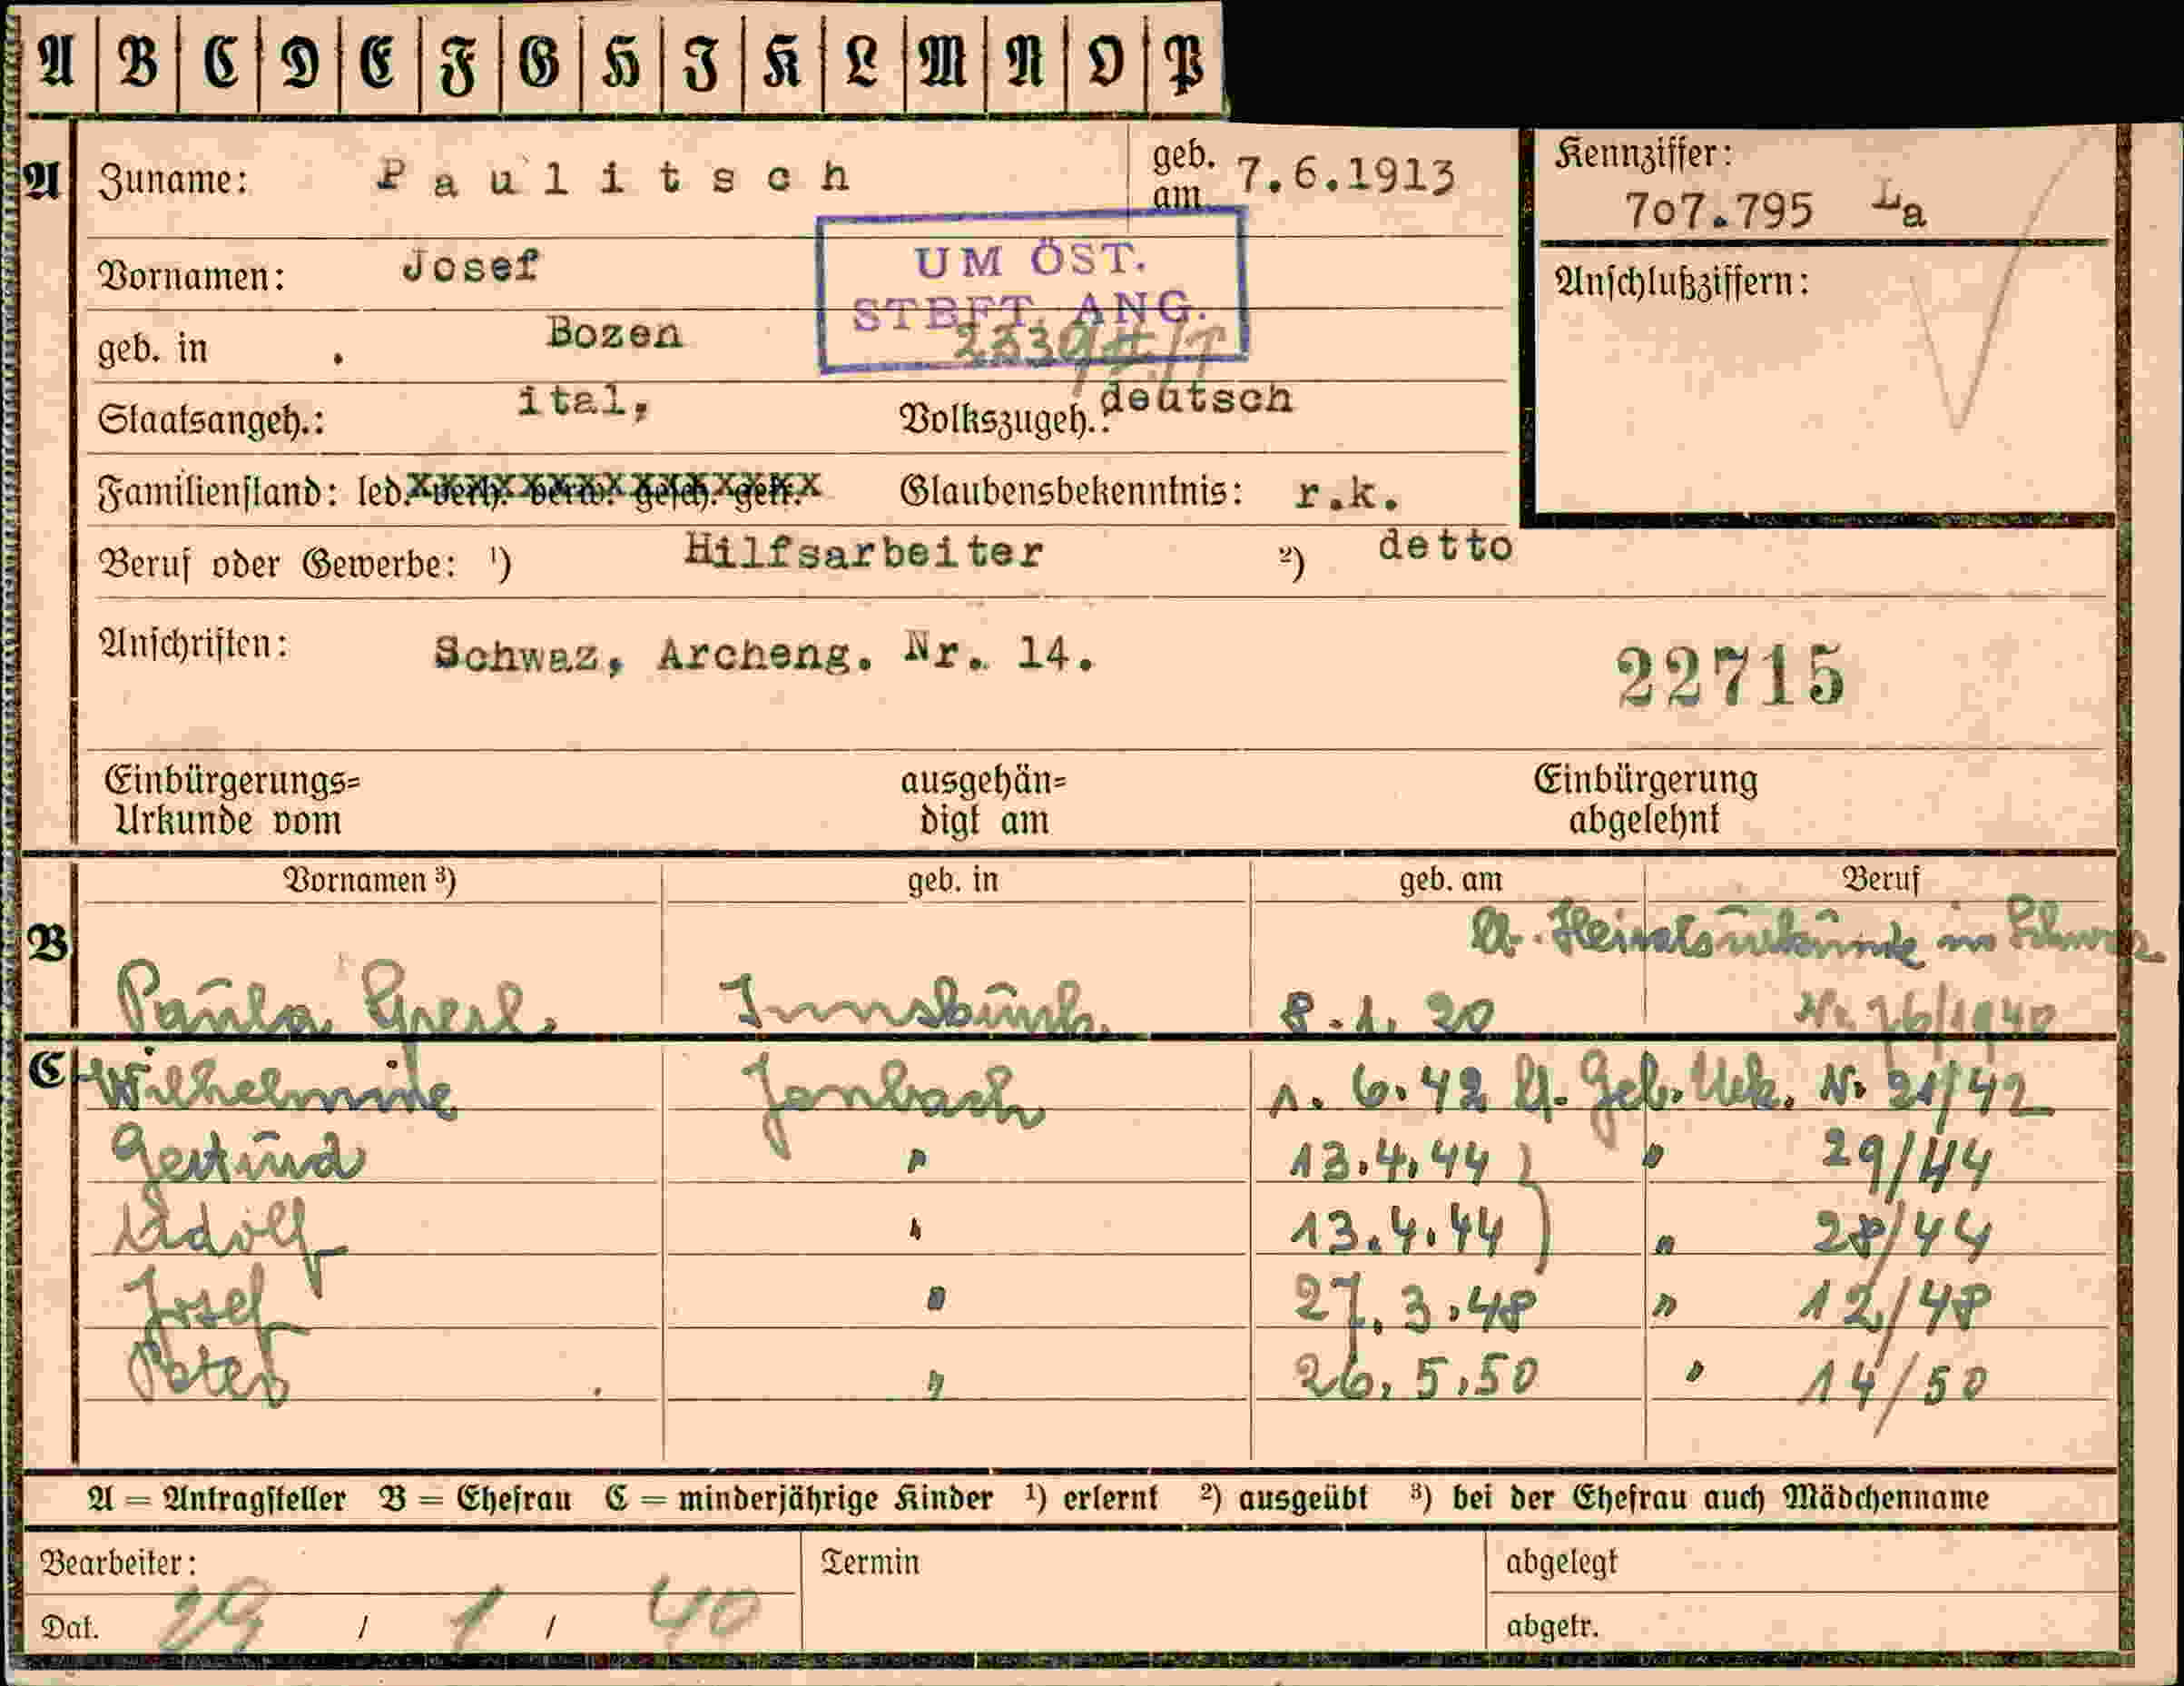 A B C D E F G H I K L M N O P
A Zuname: Paulitsch geb. am 7.6.1913 Kennziffer: 707.795 La
Vornamen: Josef UM ÖST. Anschlußziffern:
STBFT. ANG.
geb. in . Bozen
Staatsangeh.: ital, Volkszugeh.: deutsch
Familienstand: led. verh. verw. gesch. getr. Glaubensbekenntnis: r.k.
Beruf oder Gewerbe: ¹) Hilfsarbeiter ²) detto
Anschriften: Schwaz, Archeng. Nr. 14. 22715
Einbürgerungs= ausgehän= Einbürgerung
Urkunde vom digt am abgelehnt
Vornamen ³) geb. in geb. am Beruf
B lt. Heiratsurkunde in Schwaz
Paula Innsbruck 8.1.20 Nr. 76/1940
C Wilhelmine Jenbach 1.6.42 lt. Geb. Urk. Nr. 21/42
Gertrud " 13.4.44 " 29/44
Adolf " 13.4.44 " 28/44
Josef " 27.3.48 " 12/48
Peter " 26.5.50 " 14/50
A = Antragsteller B = Ehefrau C = minderjährige Kinder ¹) erlernt ²) ausgeübt ³) bei der Ehefrau auch Mädchenname
Bearbeiter: Termin abgelegt
Dat. 29 / 1 / 40 abgetr.